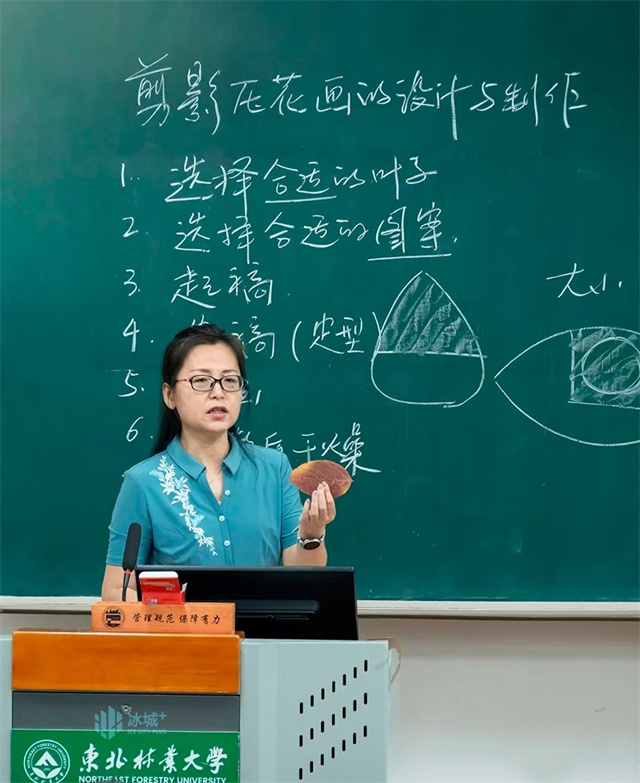 剪影压花画的设计与制作
1. 选择合适的叶子
2. 选择合适的图案.
大小.
3. 起稿
4. 稿(定型)
5.
6. 干燥
管理规范 保障有力
冰城+
ICE CITY PLUS
东北林业大学
NORTHEAST FORESTRY UNIVERSITY